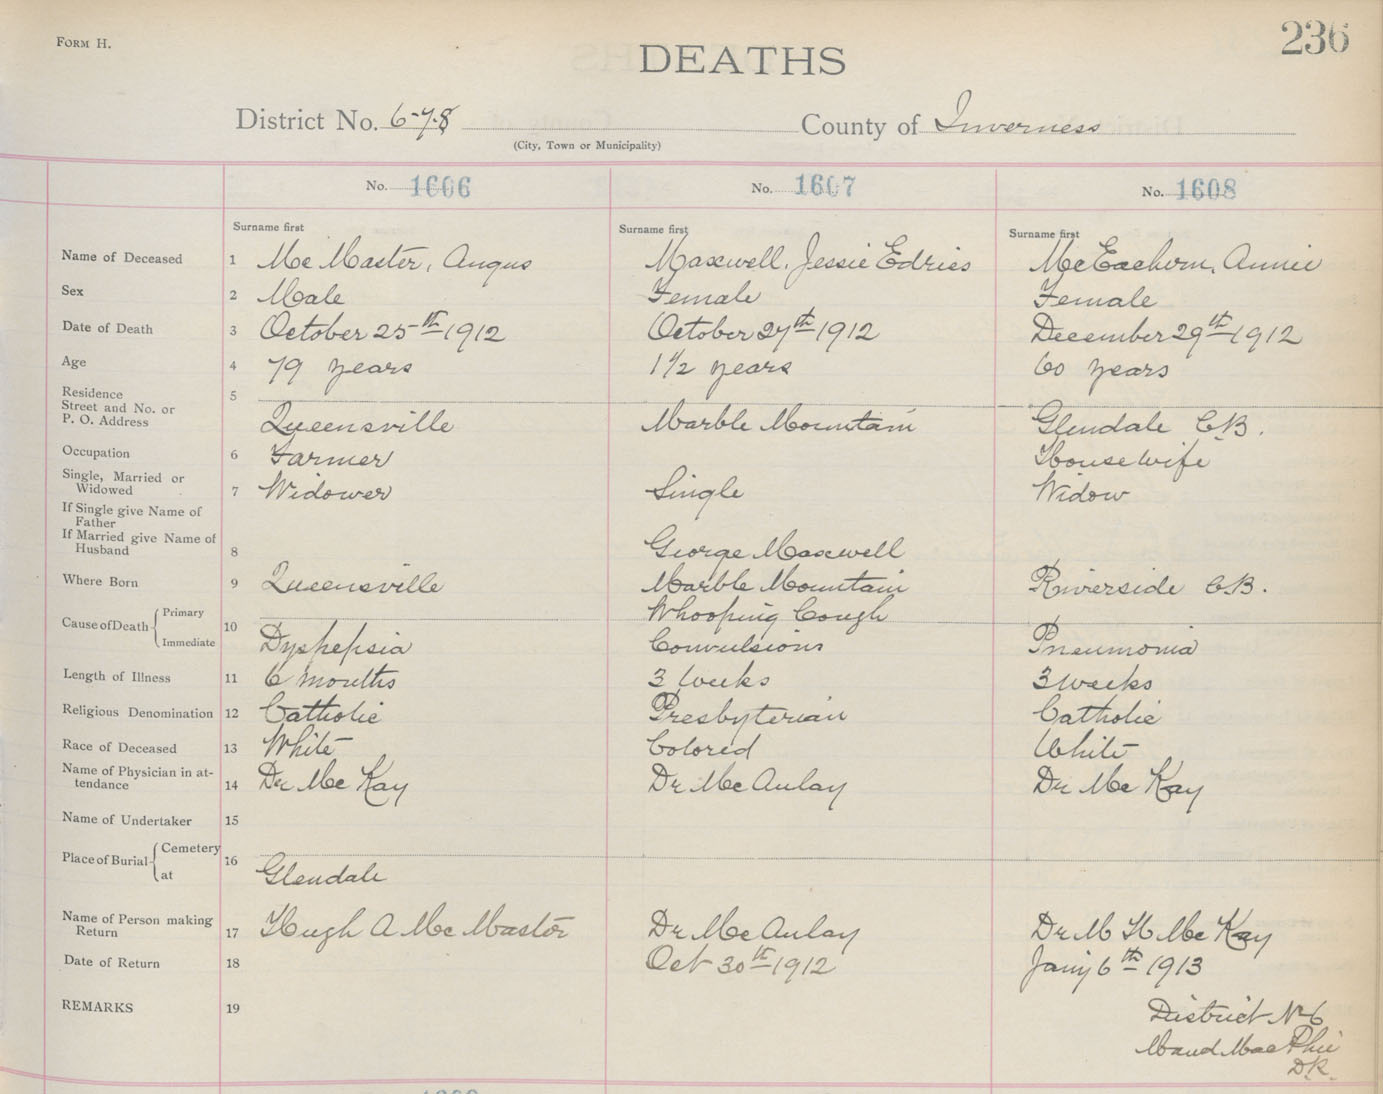 FORM H.
236
DEATHS
District No. 6-7-8 County of Inverness
(City, Town or Municipality)
No. 1606 No. 1607 No. 1608
Surname first Surname first Surname first
Name of Deceased 1 McMaster, Angus Maxwell, Jessie Edries McEachern, Annie
Sex 2 Male Female Female
Date of Death 3 October 25th 1912 October 27th 1912 December 29th 1912
Age 4 79 years 1 1/2 years 60 years
Residence 5
Street and No. or
P. O. Address Queensville Marble Mountain Glendale C.B.
Occupation 6 Farmer Housewife
Single, Married or
Widowed 7 Widower Single Widow
If Single give Name of
Father
If Married give Name of
Husband 8 George Maxwell
Where Born 9 Queensville Marble Mountain Riverside C.B.
Cause of Death Primary 10 Whooping Cough
Immediate Dyspepsia Convulsions Pneumonia
Length of Illness 11 6 months 3 weeks 3 weeks
Religious Denomination 12 Catholic Presbyterian Catholic
Race of Deceased 13 White Colored White
Name of Physician in at-
tendance 14 Dr McKay Dr McAulay Dr McKay
Name of Undertaker 15
Place of Burial Cemetery 16
at Glendale
Name of Person making
Return 17 Hugh A McMaster Dr McAulay Dr M H McKay
Date of Return 18 Oct 30th 1912 Jany 6th 1913
REMARKS 19 District No 6
Maud MacPhie
D.R.